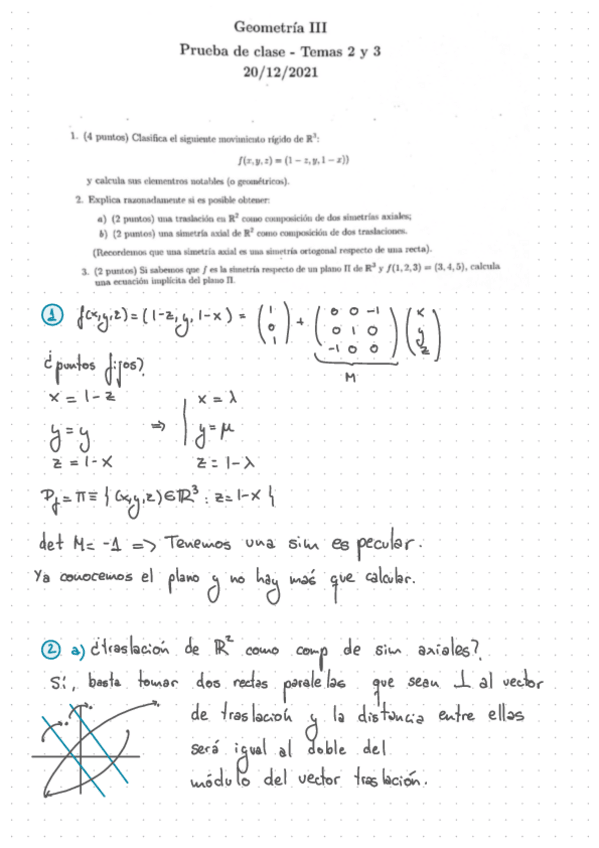 Geometría III
Prueba de clase - Temas 2 y 3
20/12/2021
1. (4 puntos) Clasifica el siguiente movimiento rígido de ℝ³:
f(x, y, z) = (1 − z, y, 1 − x))
y calcula sus elementros notables (o geométricos).
2. Explica razonadamente si es posible obtener:
a) (2 puntos) una traslación en ℝ² como composición de dos simetrías axiales;
b) (2 puntos) una simetría axial de ℝ² como composición de dos traslaciones.
(Recordemos que una simetría axial es una simetría ortogonal respecto de una recta).
3. (2 puntos) Si sabemos que f es la simetría respecto de un plano Π de ℝ³ y f(1, 2, 3) = (3, 4, 5), calcula
una ecuación implícita del plano Π.
① f(x,y,z) = (1-z, y, 1-x) = (1 0 1) + (0 0 -1 / 0 1 0 / -1 0 0) (x y z)
M
¿puntos fijos?
x = 1-z    x = λ
y = y  =>  y = μ
z = 1-x    z = 1-λ
P_f = π ≡ { (x,y,z) ∈ ℝ³ : z = 1-x }
det M = -1 => Tenemos una sim especular.
Ya conocemos el plano y no hay más que calcular.
② a) ¿traslación de ℝ² como comp de sim axiales?
Sí, basta tomar dos rectas paralelas que sean ⊥ al vector
de traslación y la distancia entre ellas
será igual al doble del
módulo del vector traslación.